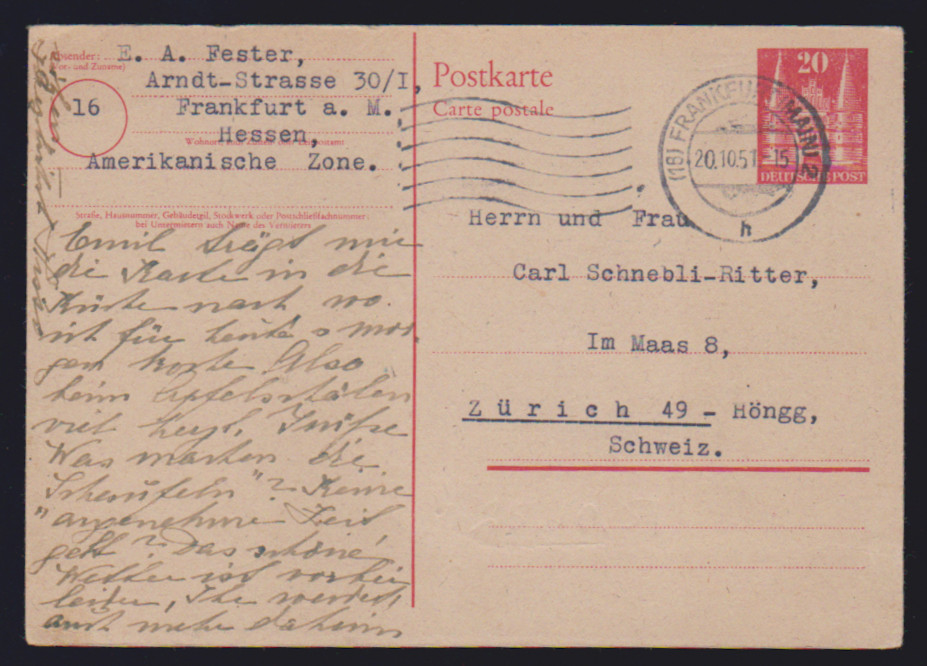 Absender:
(Vor- und Zuname)
E. A. Fester,
Arndt-Strasse 30/I,
16 Frankfurt a. M.
Wohnort, auch Zustell- oder Leitpostamt
Hessen,
Amerikanische Zone.
Straße, Hausnummer, Gebäudeteil, Stockwerk oder Postschließfachnummer
bei Untermietern auch Name des Vermieters
Emil trägt mir
die Karte in die
Küche nach wo
ich für heute & mor-
gen koche Also
beim Apfelschälen
viel herzl. Grüße
Was machen die
"? Keine
"angenehme Zeit
gelt? Das schöne
Wetter ist vorbei
leider, Ihr werdet
auch mehr daheim
Postkarte
Carte postale
20
DEUTSCHE POST
(16) FRANKFURT (MAIN) 2
20.10.51-15
h
Herrn und Frau
Carl Schnebli-Ritter,
Im Maas 8,
Zürich 49 - Höngg,
Schweiz.